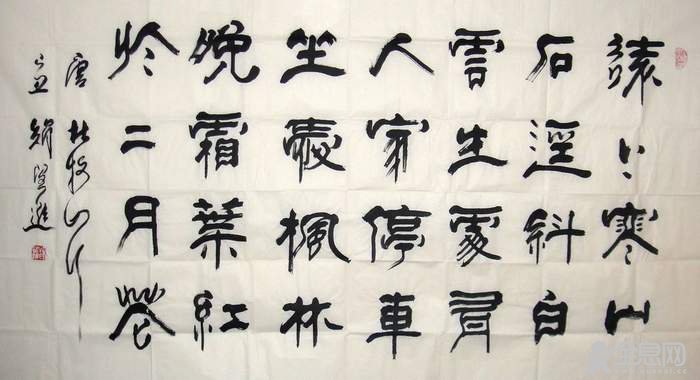 遠上寒山
石徑斜白
雲生處有
人家停車
坐愛楓林
晚霜葉紅
於二月花
唐 杜牧山行
己丑